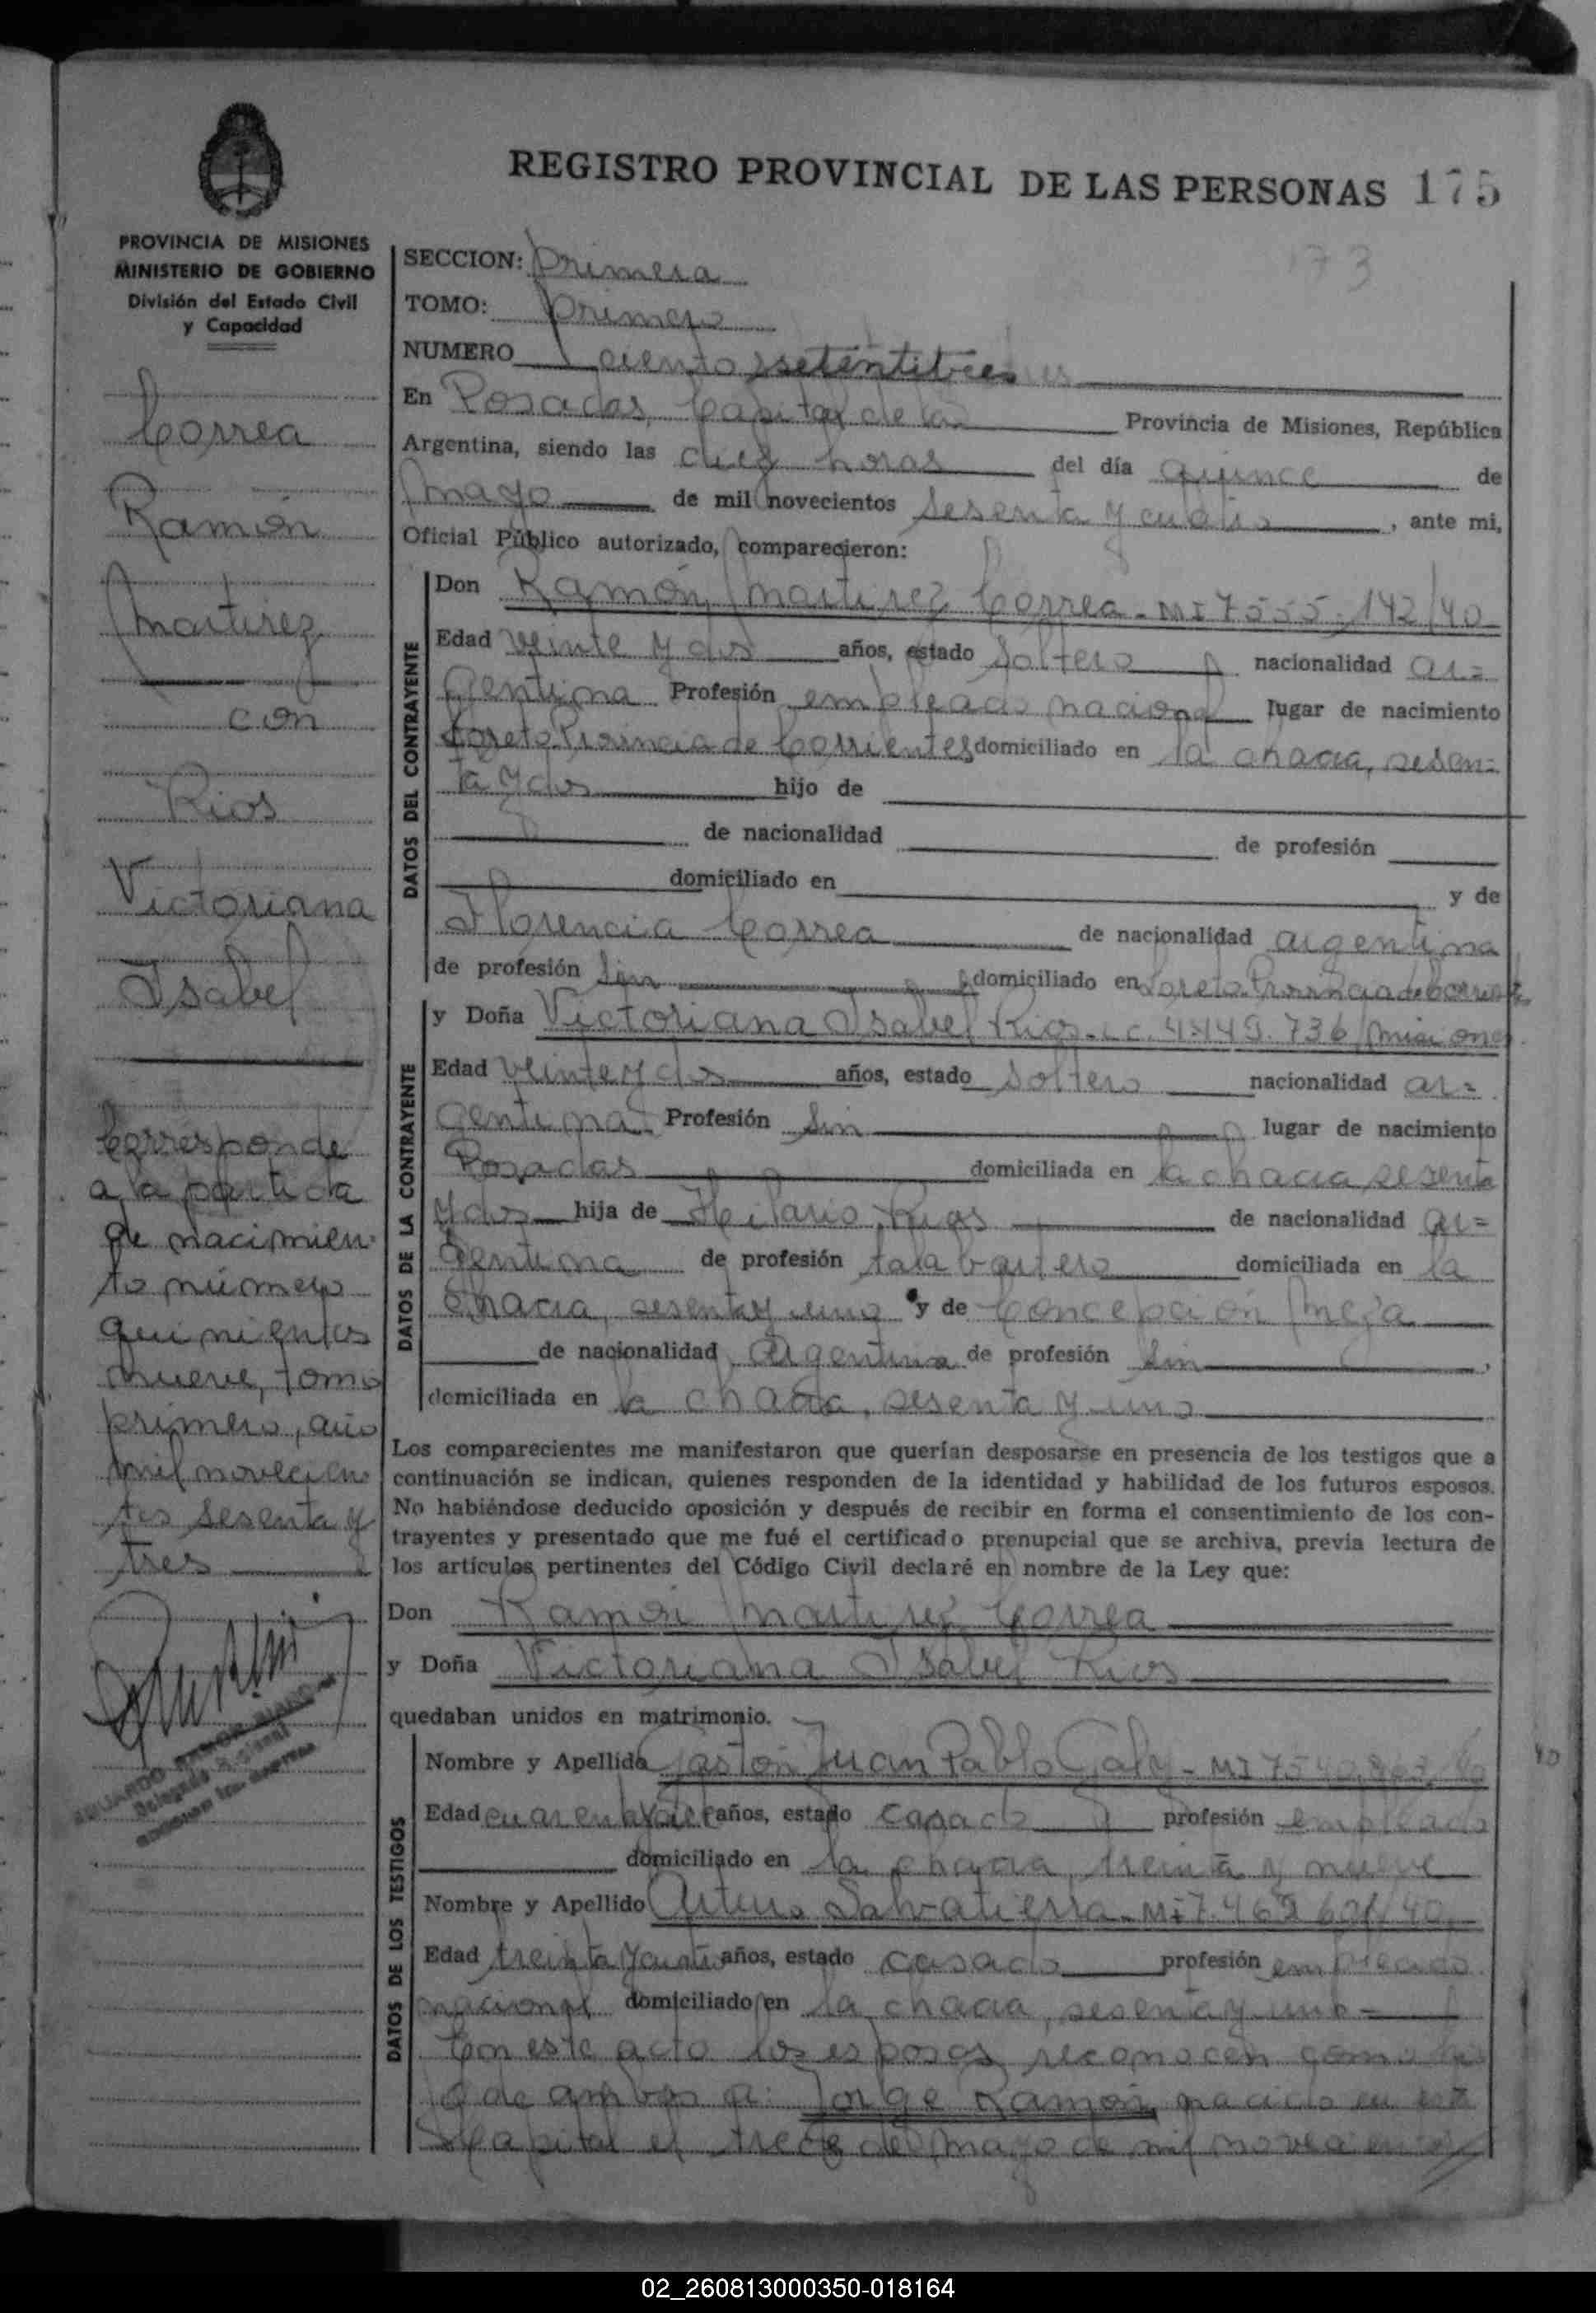 REGISTRO PROVINCIAL DE LAS PERSONAS 175
173
PROVINCIA DE MISIONES
MINISTERIO DE GOBIERNO
División del Estado Civil
y Capacidad
Correa
Ramón
Martirez
con
Rios
Victoriana
Isabel
Corresponde
a la partida
de nacimien-
to número
quinientos
nueve, tomo
primero, año
mil novecien
tos sesenta y
tres
SECCION: Primera
TOMO: Primero
NUMERO ciento setentitres
En Posadas, Capital de la Provincia de Misiones, República
Argentina, siendo las diez horas del día quince de
mayo de mil novecientos sesenta y cuatro, ante mi,
Oficial Público autorizado, comparecieron:
DATOS DEL CONTRAYENTE
Don Ramón Martirez Correa - MI 7555.142/40
Edad veinte y dos años, estado soltero nacionalidad ar=
gentina Profesión empleado nacional lugar de nacimiento
Loreto Provincia de Corrientes domiciliado en la chacra, sesen=
ta y dos hijo de
de nacionalidad de profesión
domiciliado en y de
Florencia Correa de nacionalidad argentina
de profesión sin domiciliado en Loreto Provincia de
DATOS DE LA CONTRAYENTE
y Doña Victoriana Isabel Rios - LC. 4.449.736 Misiones
Edad veinte y dos años, estado soltero nacionalidad ar=
gentina Profesión sin lugar de nacimiento
Posadas domiciliada en la chacra sesenta
y dos hija de Hilario Rios de nacionalidad ar=
gentina de profesión talabartero domiciliada en la
chacra, sesenta y uno y de Concepción Meza
de nacionalidad argentina de profesión sin,
domiciliada en la chacra, sesenta y uno
Los comparecientes me manifestaron que querían desposarse en presencia de los testigos que a
continuación se indican, quienes responden de la identidad y habilidad de los futuros esposos.
No habiéndose deducido oposición y después de recibir en forma el consentimiento de los con-
trayentes y presentado que me fué el certificado prenupcial que se archiva, previa lectura de
los artículos pertinentes del Código Civil declaré en nombre de la Ley que:
Don Ramón Martirez Correa
y Doña Victoriana Isabel Rios
quedaban unidos en matrimonio.
DATOS DE LOS TESTIGOS
Nombre y Apellido Gastón Juan Pablo Galy - MI
Edad años, estado casado profesión empleado
domiciliado en la chacra, treinta y nueve
Nombre y Apellido Arturo Salvatierra - MI 7.469.601/40
Edad treinta y cuatro años, estado casado profesión empleado
nacional domiciliado en la chacra, sesenta y uno =
En este acto los esposos reconocen como hi
jo de ambos a: Jorge Ramón, nacido en esta
Capital el trece de mayo de mil novecientos
02_260813000350-018164